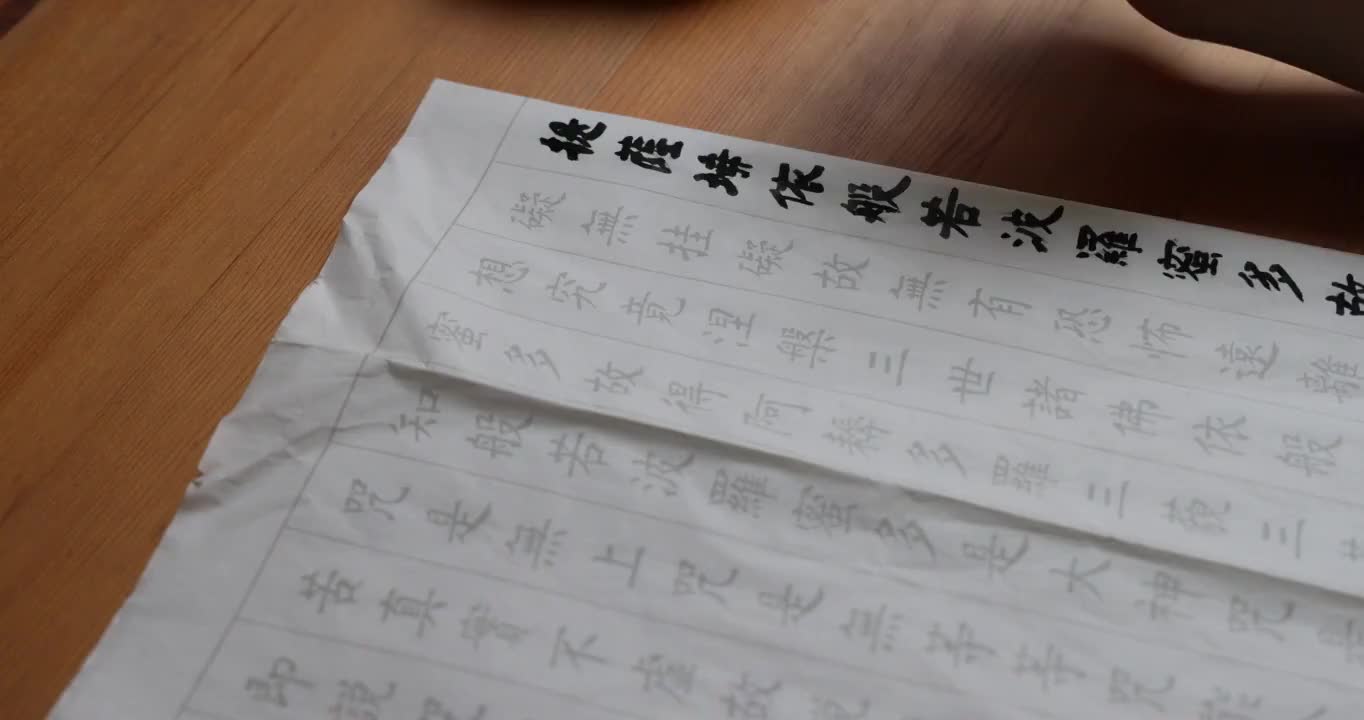 提薩埵依般若波羅蜜多故
礙無挂礙故無有恐怖遠離
想究竟涅槃三世諸佛依般
蜜多故得阿耨多羅三藐三
知般若波羅蜜多是大神咒是
咒是無上咒是無等等咒能
苦真實不虛故說
即說咒